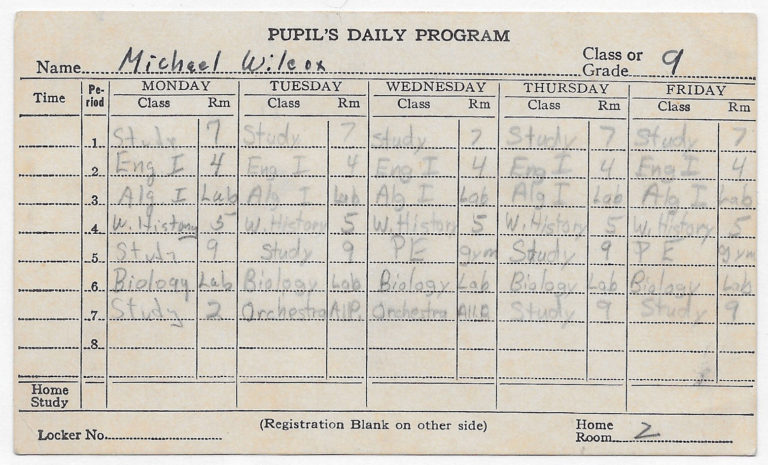 PUPIL'S DAILY PROGRAM
Name Michael Wilcox Class or Grade 9
Time Pe-riod MONDAY TUESDAY WEDNESDAY THURSDAY FRIDAY
Class Rm Class Rm Class Rm Class Rm Class Rm
1 Study 7 Study 7 Study 7 Study 7 Study 7
2 Eng I 4 Eng I 4 Eng I 4 Eng I 4 Eng I 4
3 Alg I Lab Alg I Lab Alg I Lab Alg I Lab Alg I Lab
4 W. History 5 W. History 5 W. History 5 W. History 5 W. History 5
5 Study 9 Study 9 PE gym Study 9 PE gym
6 Biology Lab Biology Lab Biology Lab Biology Lab Biology Lab
7 Study 2 Orchestra Orchestra Study 9 Study 9
8
Home Study
Locker No. (Registration Blank on other side) Home Room 2